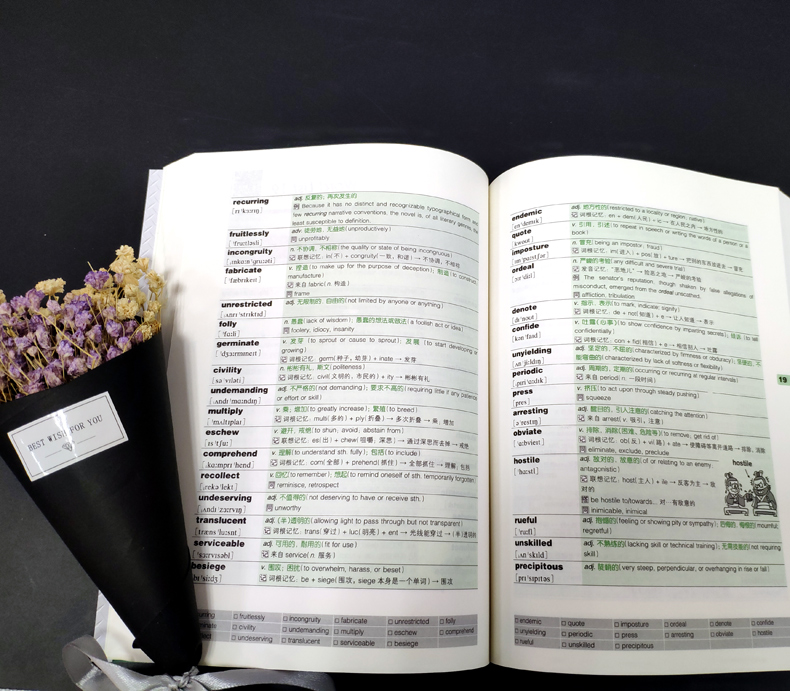 recurring
adj. 反复的; 再次发生的
例 Because it has no distinct and recognizable typographical form and
few recurring narrative conventions, the novel is, of all literary genres, the
least susceptible to definition.
fruitlessly
adv. 徒劳地, 无益地(unproductively)
同 unprofitably
incongruity
n. 不协调, 不相称(the quality or state of being incongruous)
记 联想记忆: in(不) + congruity(一致, 和谐) → 不协调, 不相称
fabricate
v. 捏造(to make up for the purpose of deception); 制造(to construct,
manufacture)
['fæbrɪkeɪt]
记 来自 fabric(n. 构造)
同 frame
unrestricted
adj. 无限制的, 自由的(not limited by anyone or anything)
folly
n. 愚蠢(lack of wisdom); 愚蠢的想法或做法(a foolish act or idea)
['fɑːli]
同 foolery, idiocy, insanity
germinate
v. 发芽(to sprout or cause to sprout); 发展(to start developing or
growing)
记 词根记忆: germ(种子, 幼芽) + inate → 发芽
civility
n. 彬彬有礼, 斯文(politeness)
记 词根记忆: civil(文明的, 市民的) + ity → 彬彬有礼
undemanding
adj. 不严格的(not demanding); 要求不高的(requiring little if any patience
or effort or skill)
multiply
v. 乘; 增加(to greatly increase); 繁殖(to breed)
['mʌltɪplaɪ]
记 词根记忆: multi(多的) + ply(折叠) → 多次折叠 → 乘; 增加
eschew
v. 避开, 戒绝(to shun, avoid, abstain from)
[ɪs'tʃuː]
记 联想记忆: es(出) + chew(咀嚼; 深思) → 通过深思而去掉 → 戒绝
comprehend
v. 理解(to understand sth. fully); 包括(to include)
[ˌkɑːmprɪ'hend]
记 词根记忆: com(全部) + prehend(抓住) → 全部抓住 → 理解; 包括
recollect
v. 回忆(to remember); 想起(to remind oneself of sth. temporarily forgotten)
[ˌrekə'lekt]
同 reminisce, retrospect
undeserving
adj. 不值得的(not deserving to have or receive sth.)
同 unworthy
translucent
adj. (半)透明的(allowing light to pass through but not transparent)
[træns'luːsnt]
记 词根记忆: trans(穿过) + luc(明亮) + ent → 光线能穿过 → (半)透明的
serviceable
adj. 可用的, 耐用的(fit for use)
['sɜːrvɪsəbl]
记 来自 service(n. 服务)
besiege
v. 围攻; 困扰(to overwhelm, harass, or beset)
[bɪ'siːdʒ]
记 词根记忆: be + siege(围攻, siege 本身是一个单词) → 围攻
□ fruitlessly □ incongruity □ fabricate □ unrestricted □ folly
□ civility □ undemanding □ multiply □ eschew □ comprehend
□ undeserving □ translucent □ serviceable □ besiege
endemic
adj. 地方性的(restricted to a locality or region; native)
记 词根记忆: en + dem(人民) + ic → 在人民之内 → 地方性的
quote
v. 引用, 引述(to repeat in speech or writing the words of a person or a
book)
[kwoʊt]
imposture
n. 冒充(being an impostor, fraud)
ordeal
n. 严酷的考验(any difficult and severe trial)
例 The senator's reputation, though shaken by false allegations of
misconduct, emerged from the ordeal unscathed.
同 affliction, tribulation
denote
v. 指示, 表示(to mark, indicate; signify)
[dɪ'noʊt]
confide
v. 吐露(心事)(to show confidence by imparting secrets);
confidentially)
[kən'faɪd]
unyielding
adj. 坚定的, 不屈的(characterized by firmness or obduracy);
(characterized by lack of softness or flexibility)
periodic
adj. 周期的, 定期的(occurring or recurring at regular intervals)
记 来自 period(n. 一段时间)
press
v. 挤压(to act upon through steady pushing)
[pres]
同 squeeze
arresting
adj. 醒目的, 引人注意的(catching the attention)
[ə'restɪŋ]
记 来自 arrest(v. 吸引, 注意)
obviate
v. 排除, 消除(困难, 危险等)(to remove, get rid of)
['ɑːbvieɪt]
同 eliminate, exclude, preclude
hostile
adj. 敌对的, 敌意的(of or relating to an enemy;
antagonistic)
['hɑːstl]
记 联想记忆: host(主人) + ile → 反客为主 → 敌
对的
搭 be hostile to/towards... 对…有敌意的
同 inimicable, inimical
hostile
rueful
adj. 抱憾的(feeling or showing pity or sympathy); 后悔的, 悔恨的(mournful,
regretful)
['ruːfl]
unskilled
adj. 不熟练的(lacking skill or technical training); 无需技能的(not requiring
skill)
[ˌʌn'skɪld]
precipitous
adj. 陡峭的(very steep, perpendicular, or overhanging in rise or fall)
[prɪ'sɪpɪtəs]
19
□ endemic □ quote □ imposture □ ordeal □ denote □ confide
□ unyielding □ periodic □ press □ arresting □ obviate □ hostile
□ rueful □ unskilled □ precipitous
BEST WISH FOR YOU